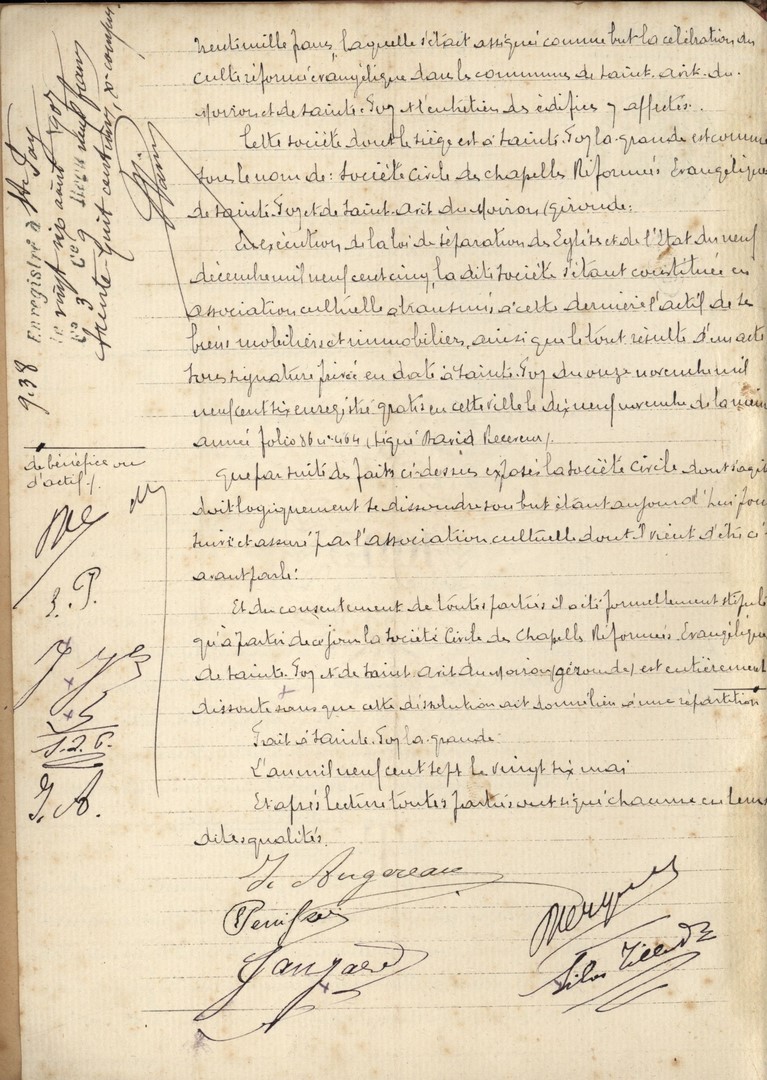 trente mille francs, laquelle s'était assignée comme but la célébration du
culte réformé évangélique dans les communes de Saint. Avit. du.
Moiron et de Sainte. Foy et l'entretien des édifices y affectés.
Cette société dont le siège est à Sainte. Foy la. grande est connue
sous le nom de: Société Civile des chapelles Réformées Evangéliques
de Sainte. Foy et de Saint. Avit du Moiron (gironde).
En exécution de la loi de séparation des Eglises et de l'Etat du neuf
décembre mil neuf cent cinq, la dite société s'étant constituée en
association cultuelle a transmis à cette dernière l'actif de ses
biens mobiliers et immobiliers, ainsi que le tout résulte d'un acte
sous signature privée en date à Sainte. Foy du onze novembre mil
neuf cent six enregistré gratis en cette ville le dix neuf novembre de la même
année folio 86 n° 464 (signé David Receveur).
Que par suite des faits ci-dessus exposés la société Civile dont s'agit
doit logiquement se dissoudre son but étant aujourd'hui pour
suivi et assuré par l'association cultuelle dont il vient d'être ci-
avant parlé:
Et du consentement de toutes parties il a été formellement stipulé
qu'à partir de ce jour la Société Civile des Chapelles Réformées. Evangéliques
de Sainte. Foy et de Saint. Avit du Moiron (gironde) est entièrement
dissoute sans que cette dissolution ait donné lieu à une répartition
Fait à Sainte. Foy la. grande.
L'an mil neuf cent sept le vingt six mai
Et après lecture toutes parties ont signé chacune en leurs
dites qualités.
J. Augereau
Enregistré à Ste Foy
le vingt six août 1907
trente huit centimes, Xes compris
938
de bénéfice ou
d'actif ./.
J. P.
J. A.